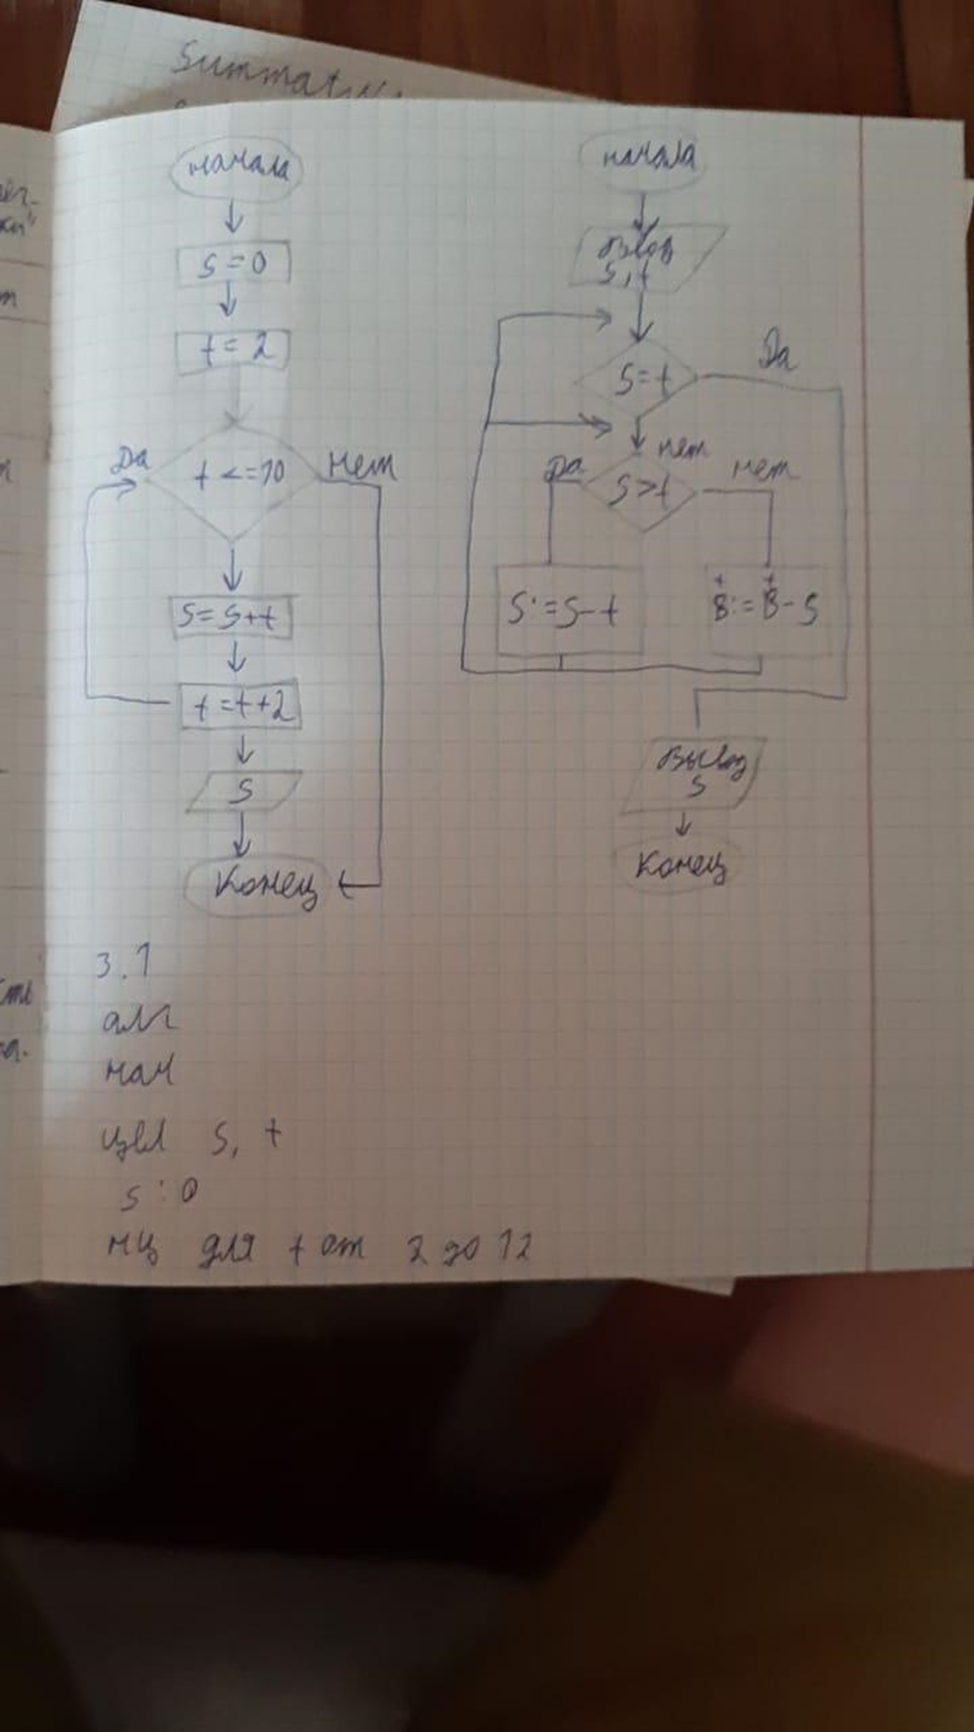 Summative
начала
s = 0
t = 2
Да
t <= 10
Нет
s = s + t
t = t + 2
s
Конец
начала
s, t
s = t
Да
нет
Да
s > t
нет
s := s - t
t t
:= - s
Вывод
s
Конец
3.1
алг
нач
цел s, t
s : 0
нц для t от 2 до 12